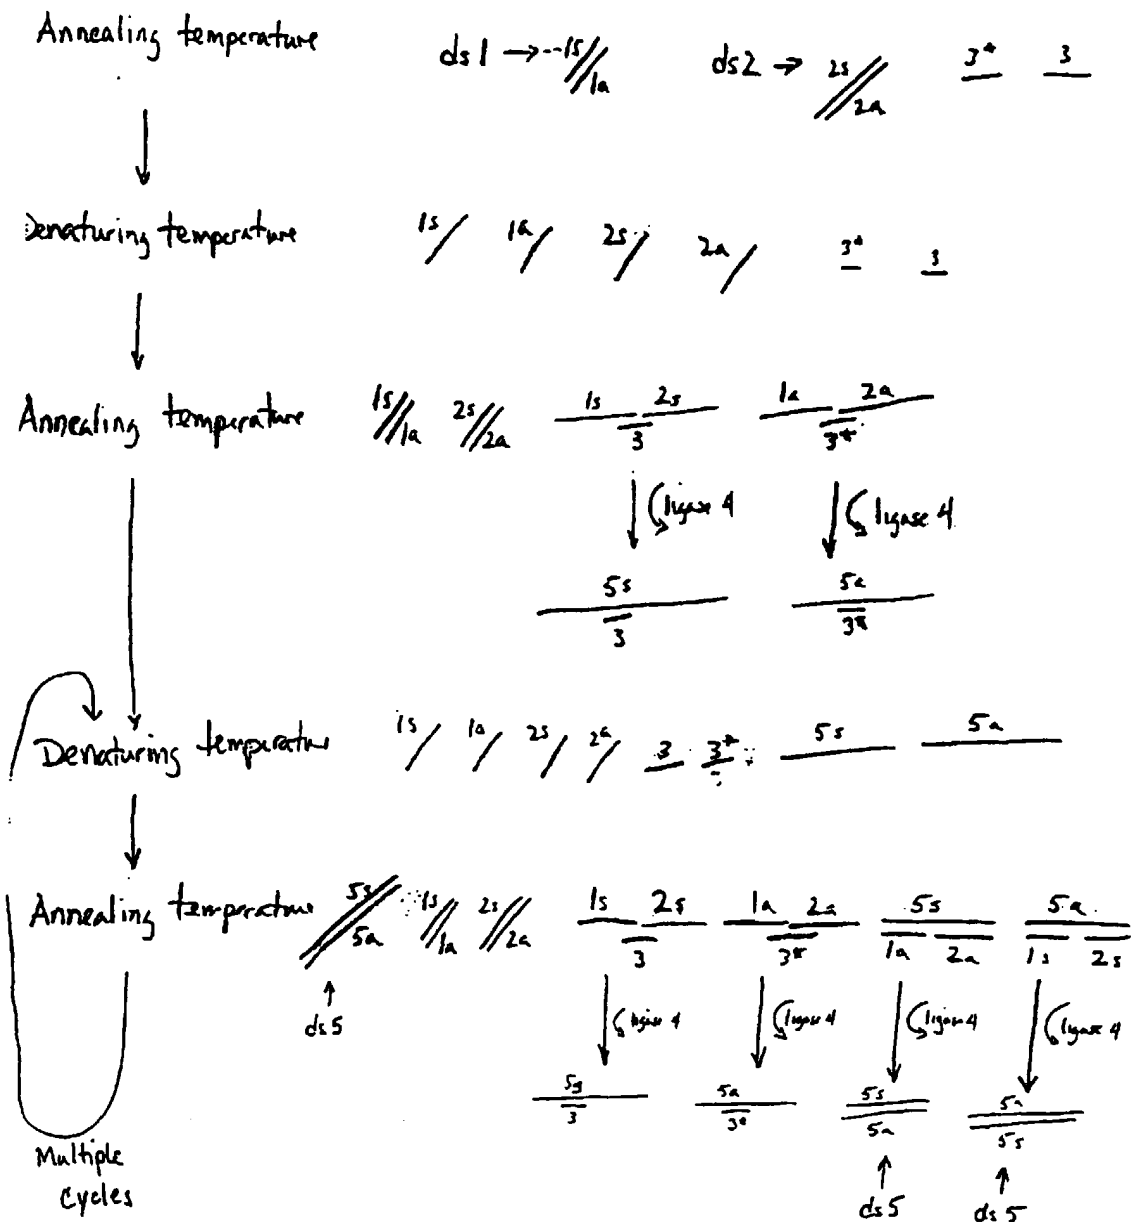 Annealing temperature
ds1 → 1s
1a
ds2 → 2s
2a
3* 3
Denaturing temperature
1s 1a 2s 2a 3* 3
Annealing temperature
1s 2s 1s 2s 1a 2a
1a 2a 3 3*
ligase 4 ligase 4
5s 5a
3 3*
Denaturing temperature
1s 1a 2s 2a 3 3* 5s 5a
Annealing temperature
5s 1s 2s 1s 2s 1a 2a 5s 5a
5a 1a 2a 3 3* 1a 2a 1s 2s
ds5
ligase 4 ligase 4 ligase 4 ligase 4
5s 5a 5s 5a
3 3* 5a 5s
ds5 ds5
Multiple
Cycles